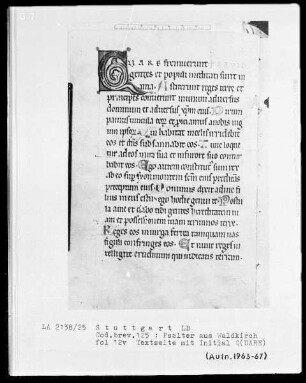 Quare fremuerunt
gentes et populi meditati sunt in
ania. Astiterunt reges terre et
principes convenerunt in unum adversus
dominum et adversus xpm eius. Dirum
eos et dns subsannabit eos. Tunc loque
tur ad eos in ira sua et in furore suo contur
babit eos. Ego autem constitutus sum rex
ab eo sup syon montem scm eius predicans
preceptum eius. Dominus dixit ad me fili
us meus es tu ego hodie genui te. Postu
la a me et dabo tibi gentes hereditatem tu
am et possessionem tuam terminos terre.
Reges eos in virga ferrea tamquam vas
figuli confringes eos. Et nunc reges in
telligite erudimini qui iudicatis terram.
LA 2138/25 Stuttgart LB
Cod.brev.125 : Psalter aus Waldkirch
fol 12v Textseite mit Initial Q(UARE)
(Aufn.1965-67)